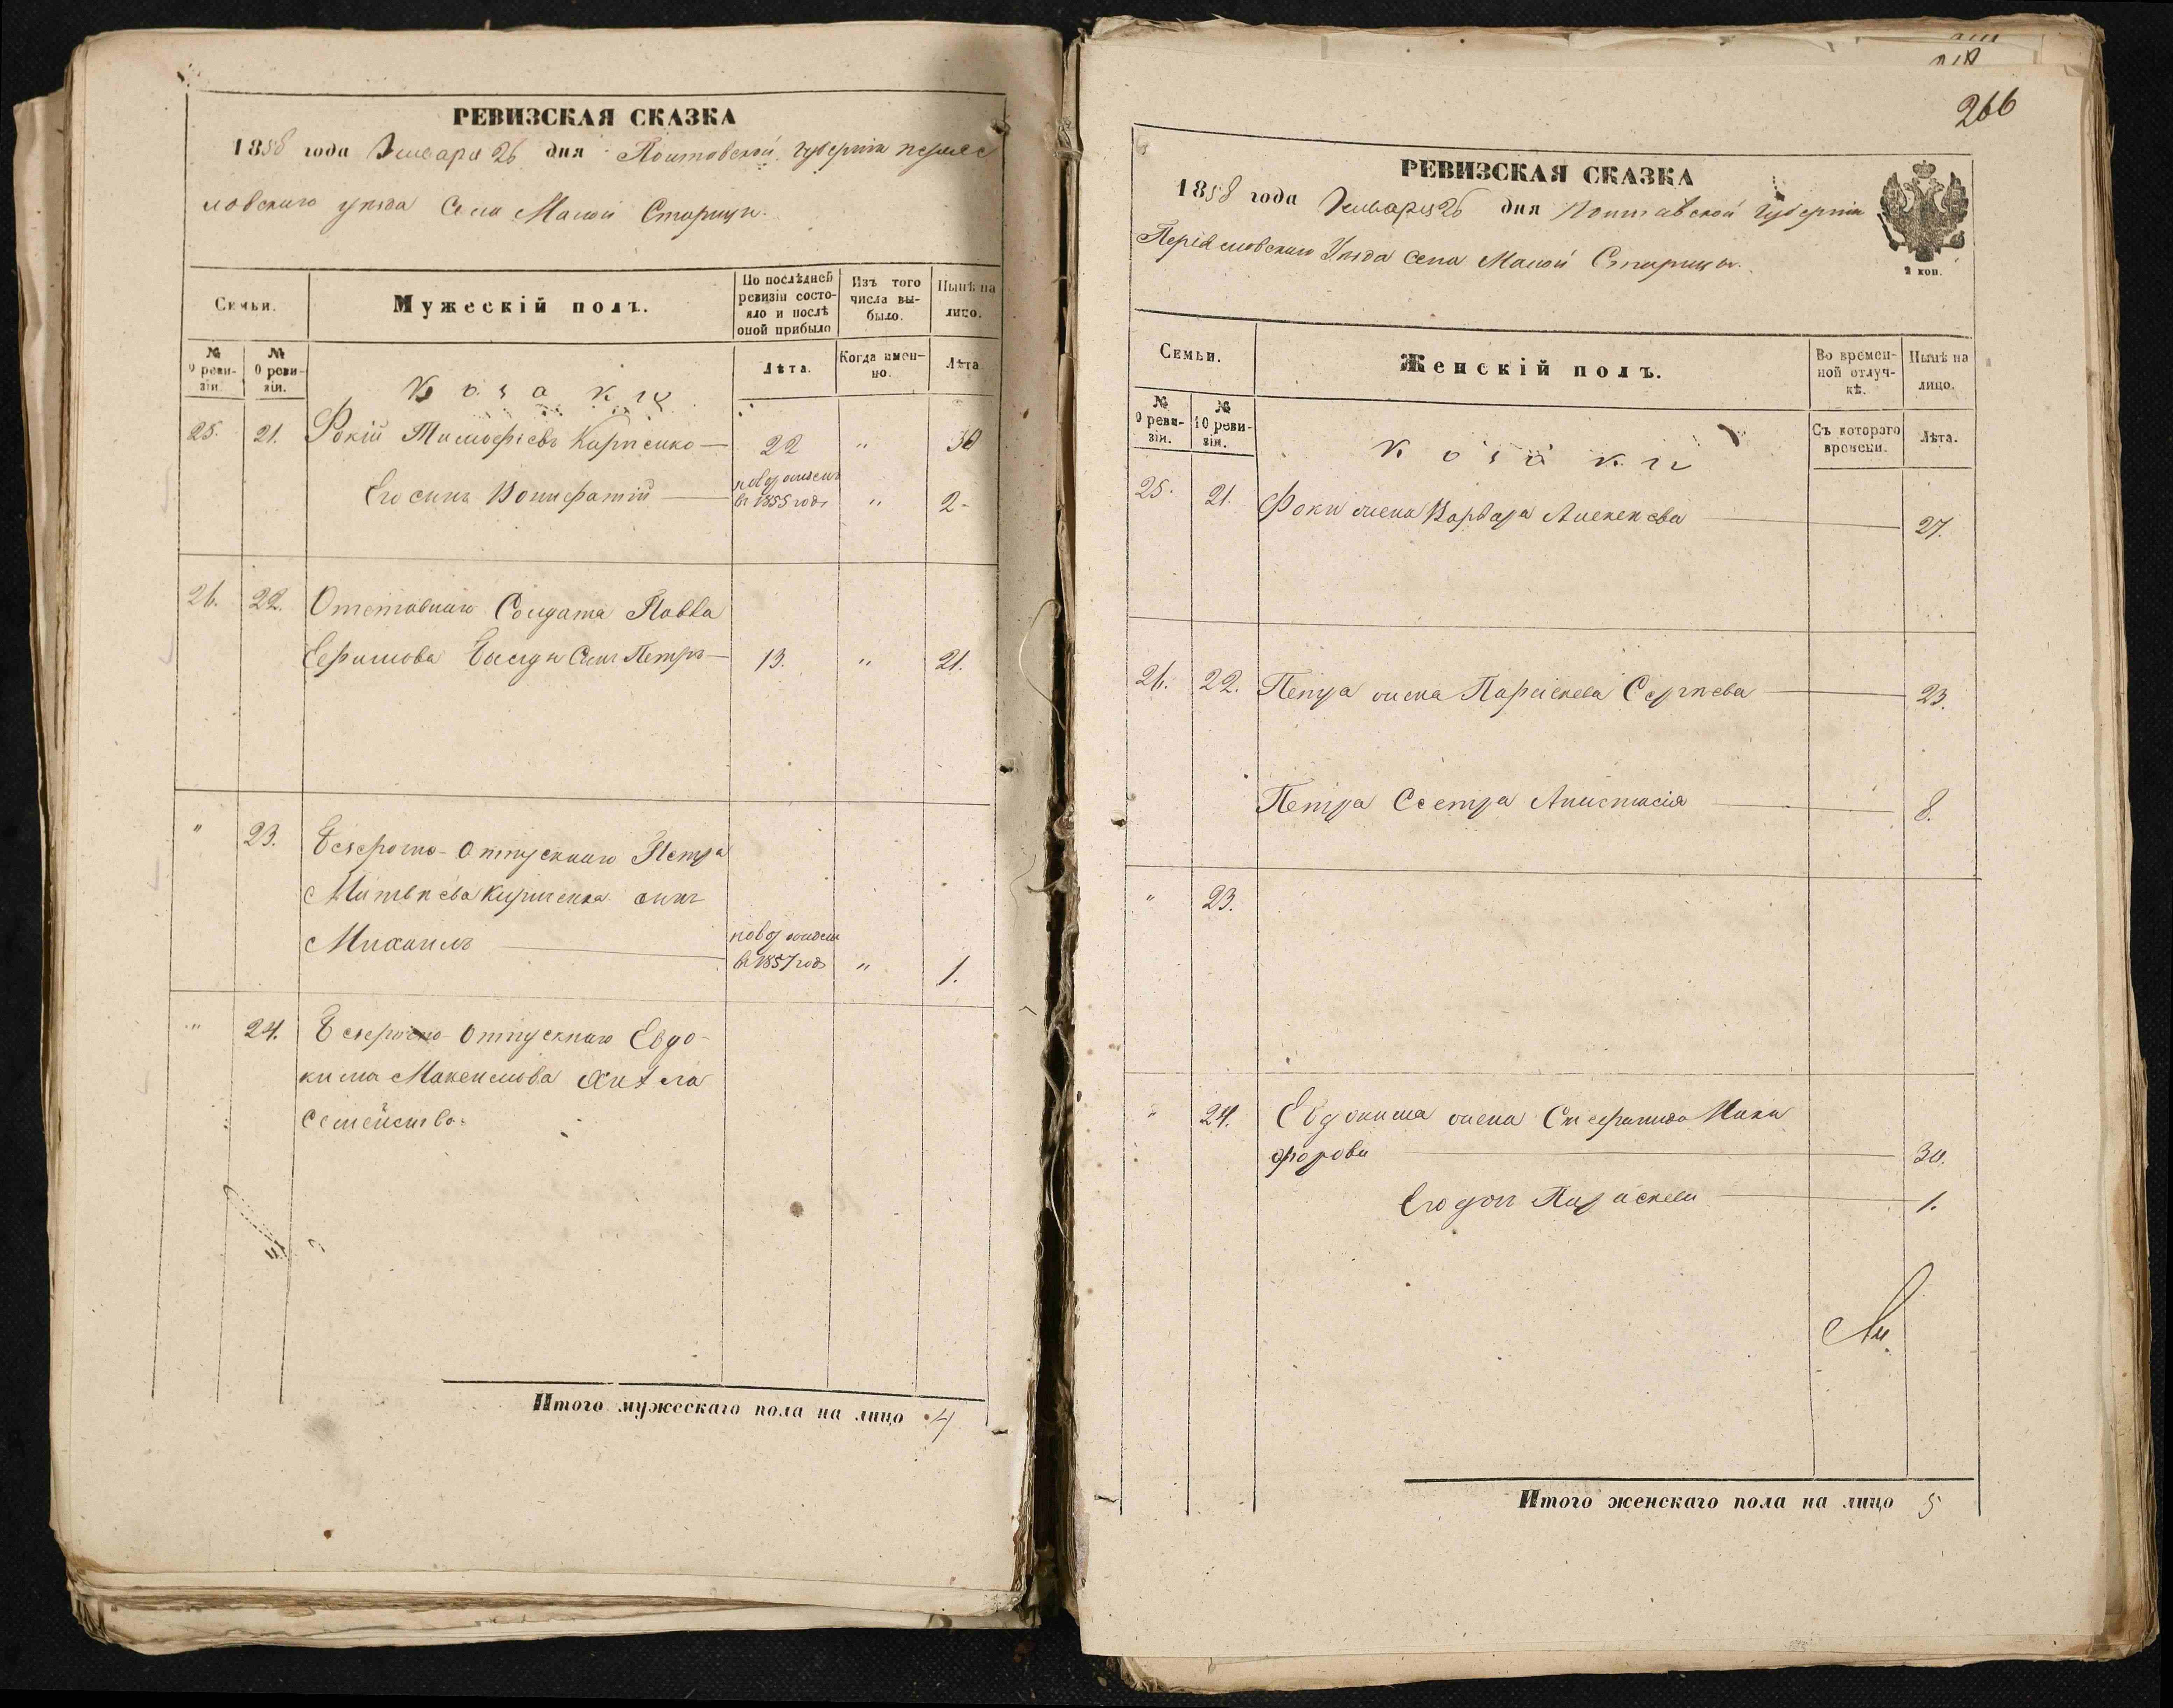 РЕВИЗСКАЯ СКАЗКА
1858 года Января 26 дня Полтавской губерніи переяс
ловскаго уѣзда Села Малой Старицы.
Семьи.
Мужескій полъ.
По послѣдней ревизіи состояло и послѣ оной прибыло
Изъ того числа выбыло.
Нынѣ на лицо.
№ 9 ревизіи.
№ 10 ревизіи.
Козаки
Лѣта.
Когда именно.
Лѣта
25. 21. Фокій Тимофіевъ Карпенко — 22 " 30
Его сынъ Вонифатій — новорожденъ в 1855 годѣ " 2
26. 22. Отставнаго Солдата Павла
Ефимова Сынъ Петръ — 13. " 21.
" 23. Безсрочно-отпускнаго Петра
Матвѣева сынъ
Михаилъ — новорожден в 1857 годѣ " 1.
" 24. Безсрочно Отпускнаго Евдо-
кима Максимова
семейство:
Итого мужескаго пола на лицо 4
266
РЕВИЗСКАЯ СКАЗКА
1858 года Января 26 дня Полтавской Губерніи
Переясловскаго Уѣзда села Малой Старицы.
2 коп.
Семьи.
Женскій полъ.
Во временной отлучкѣ.
Нынѣ на лицо.
№ 9 ревизіи.
№ 10 ревизіи.
Козаки
Съ котораго времени.
Лѣта.
25. 21. Фоки жена Варвара Алексѣева — 27.
26. 22. Петра жена Параскева Сергѣева — 23.
Петра Сестра Анастасія — 8.
" 23.
" 24. Евдокима жена Стефанида Ники
форова — 30.
Его дочь Параскева — 1.
Итого женскаго пола на лицо 5